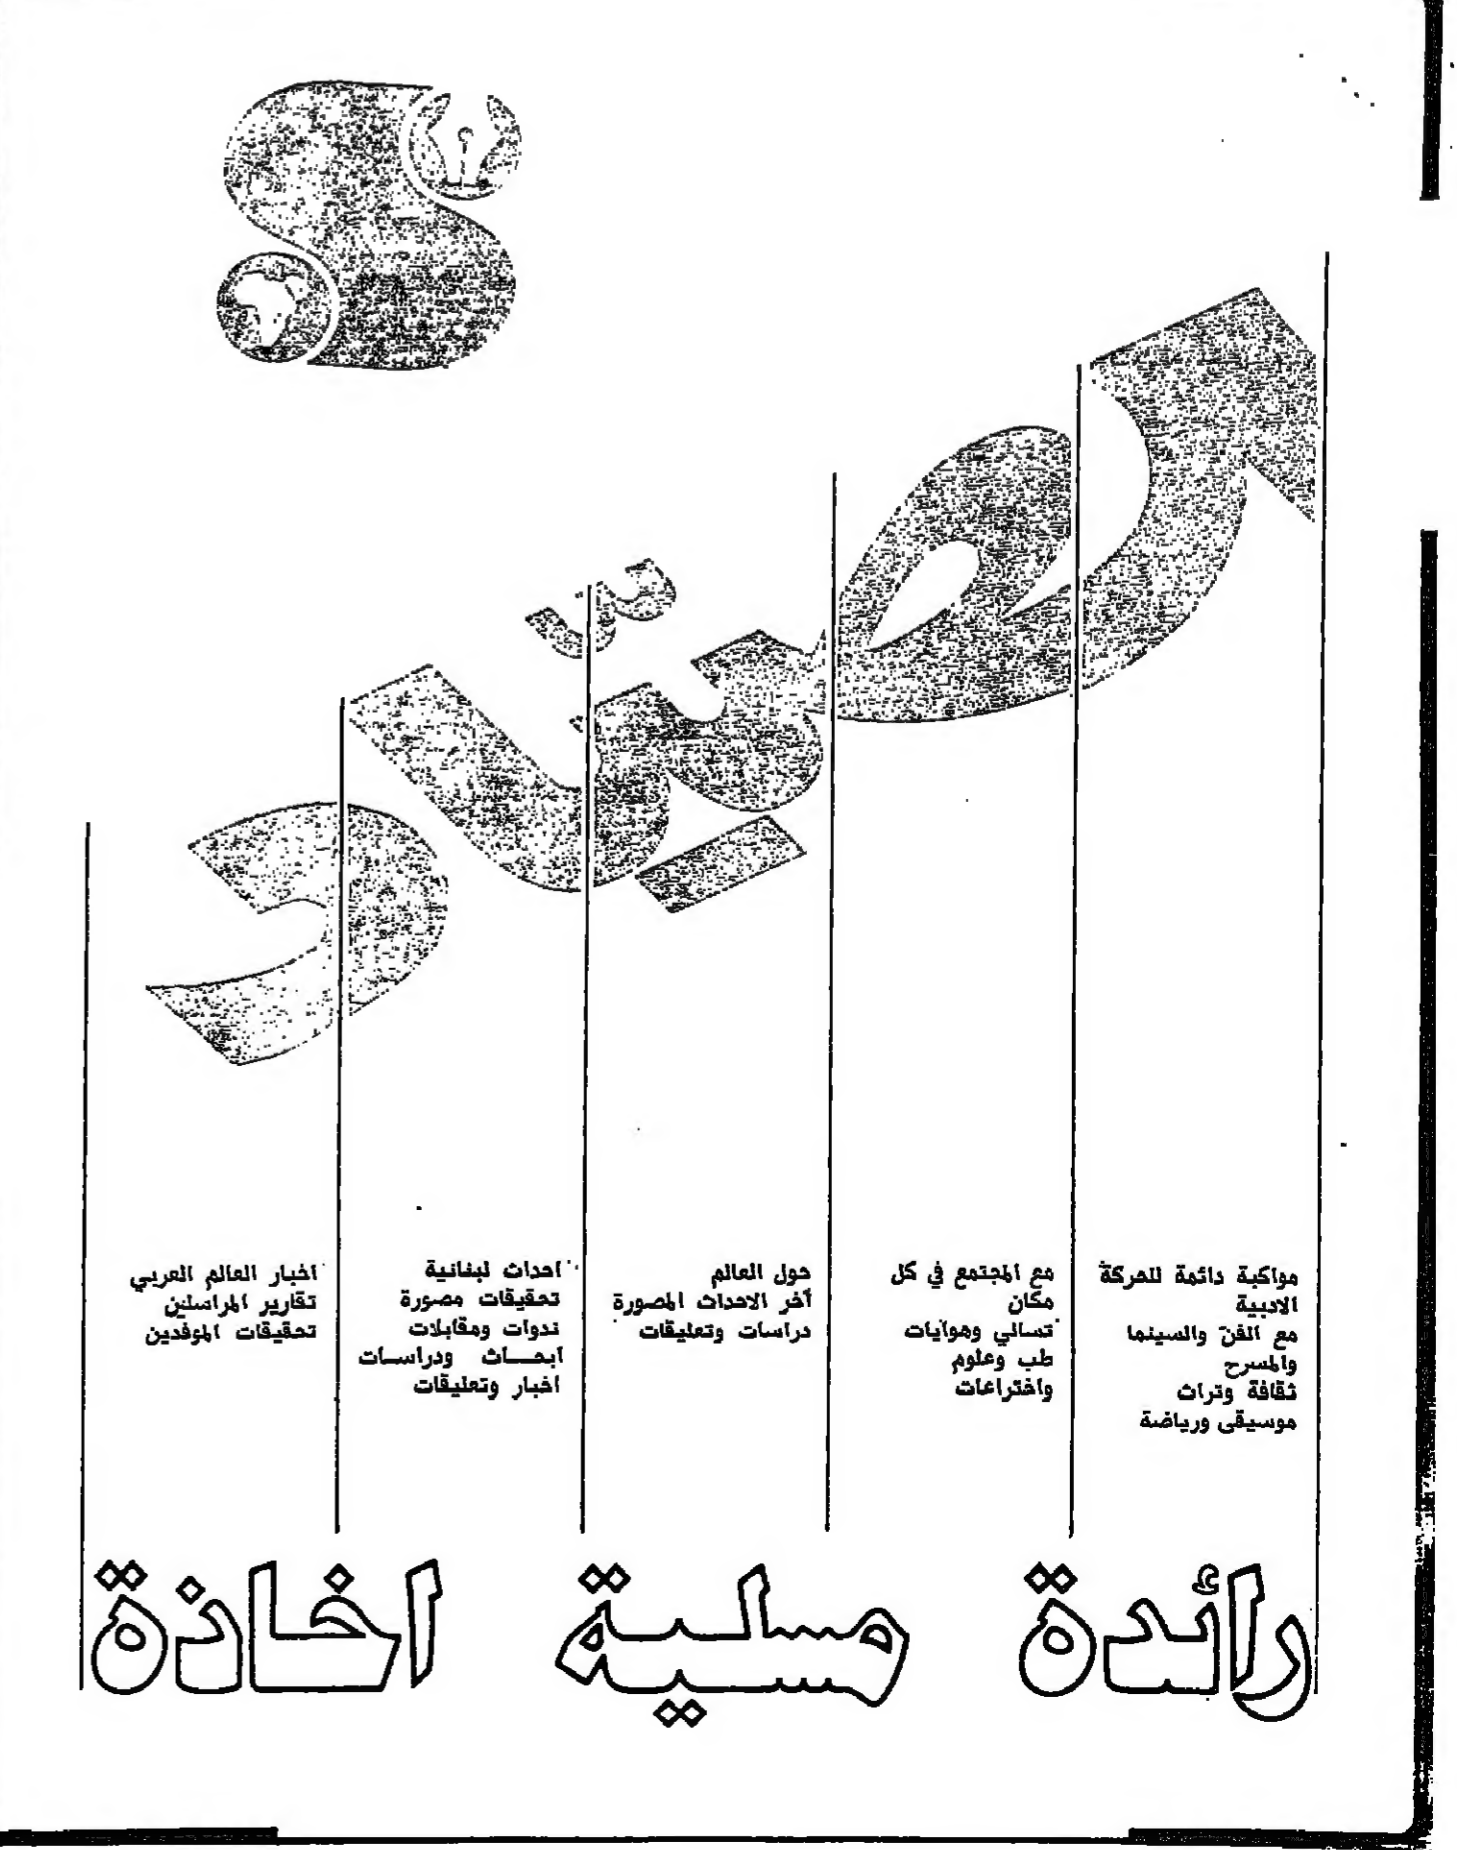 الصيّاد
مواكبة دائمة للحركة
الادبية
مع الفنّ والسينما
والمسرح
ثقافة وتراث
موسيقى ورياضة
مع المجتمع في كل
مكان
تسالي وهوايات
طب وعلوم
واختراعات
حول العالم
آخر الاحداث المصورة
دراسات وتعليقات
احداث لبنانية
تحقيقات مصورة
ندوات ومقابلات
ابحـــاث ودراســات
اخبار وتعليقات
اخبار العالم العربي
تقارير المراسلين
تحقيقات الموفدين
رائدة مسلية اخاذة